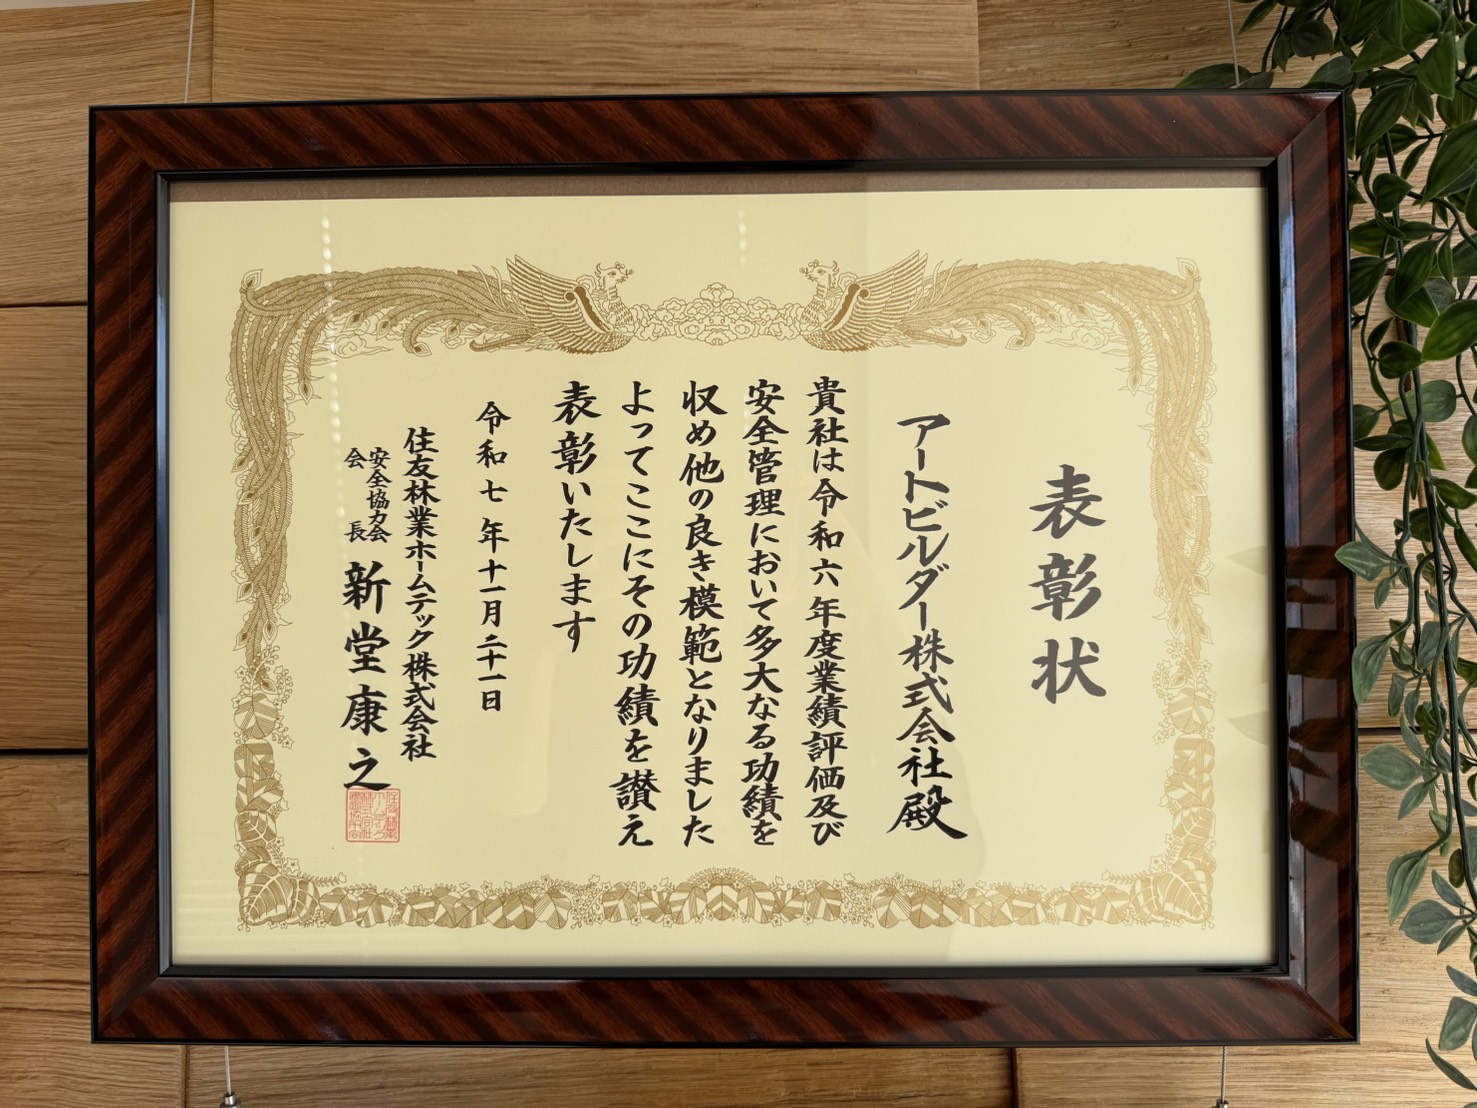 表彰状
アートビルダー株式会社殿
貴社は令和六年度業績評価及び
安全管理において多大なる功績を
収め他の良き模範となりました
よってここにその功績を讃え
表彰いたします
令和七年十一月二十一日
住友林業ホームテック株式会社
安全協力会
会長 新堂康之